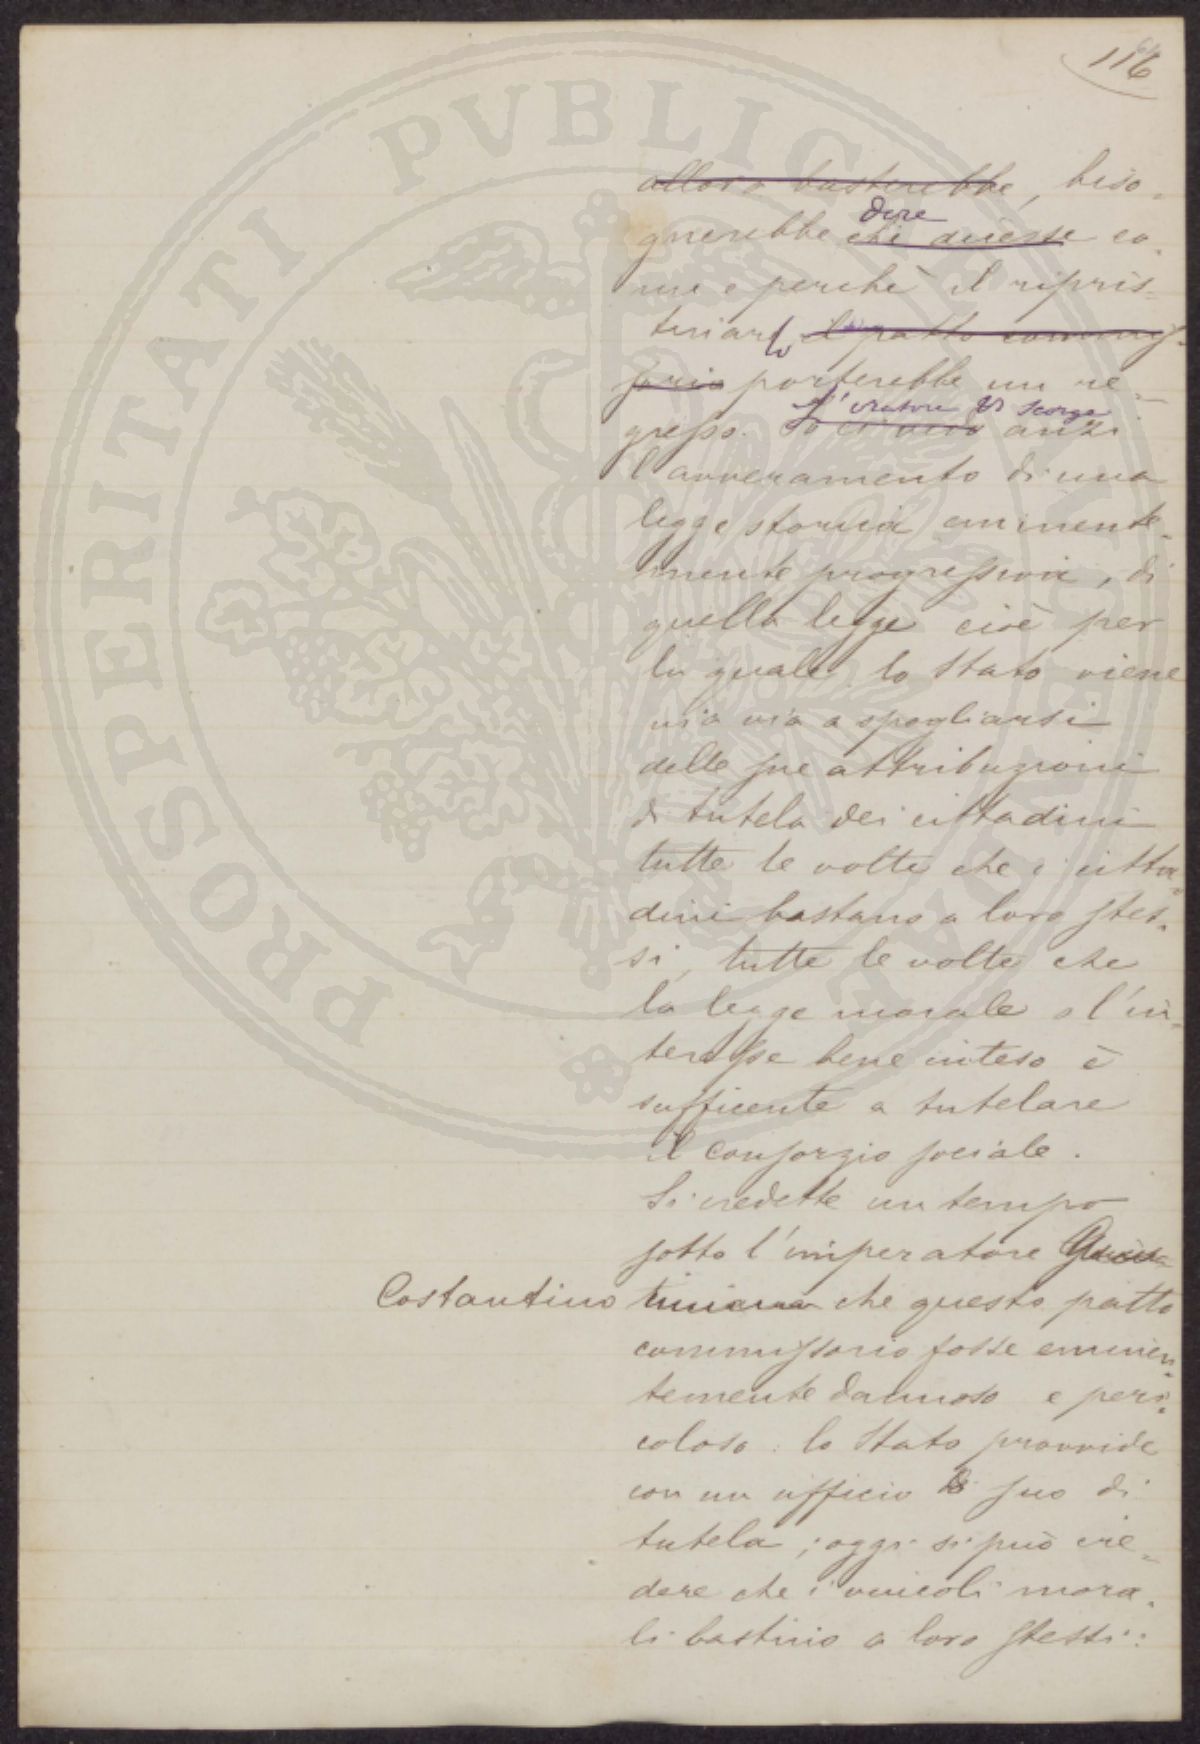 116
allora basterebbe, biso-
dire
gnerebbe che dicesse co-
me e perchè il ripris-
tinarlo il patto commis-
sorio porterebbe un re-
L'oratore vi scorge
gresso. Io ci vedo anzi
l'avveramento di una
legge storica eminente-
mente progressiva, di
quella legge cioè per
la quale lo Stato viene
via via a spogliarsi
delle sue attribuzioni
di tutela dei cittadini
tutte le volte che i citta-
dini bastano a loro stes-
si, tutte le volte che
la legge morale o l'in-
teresse bene inteso è
sufficente a tutelare
il consorzio sociale.
Si credette un tempo
sotto l'imperatore Giusti-
Costantino
tiniano che questo patto
commissorio fosse eminen-
temente dannoso e peri-
coloso: lo Stato provvide
con un ufficio suo di
tutela; oggi si può cre-
dere che i vincoli mora-
li bastino a loro stessi:
PROSPERITATI PVBLICAE AVGENDAE